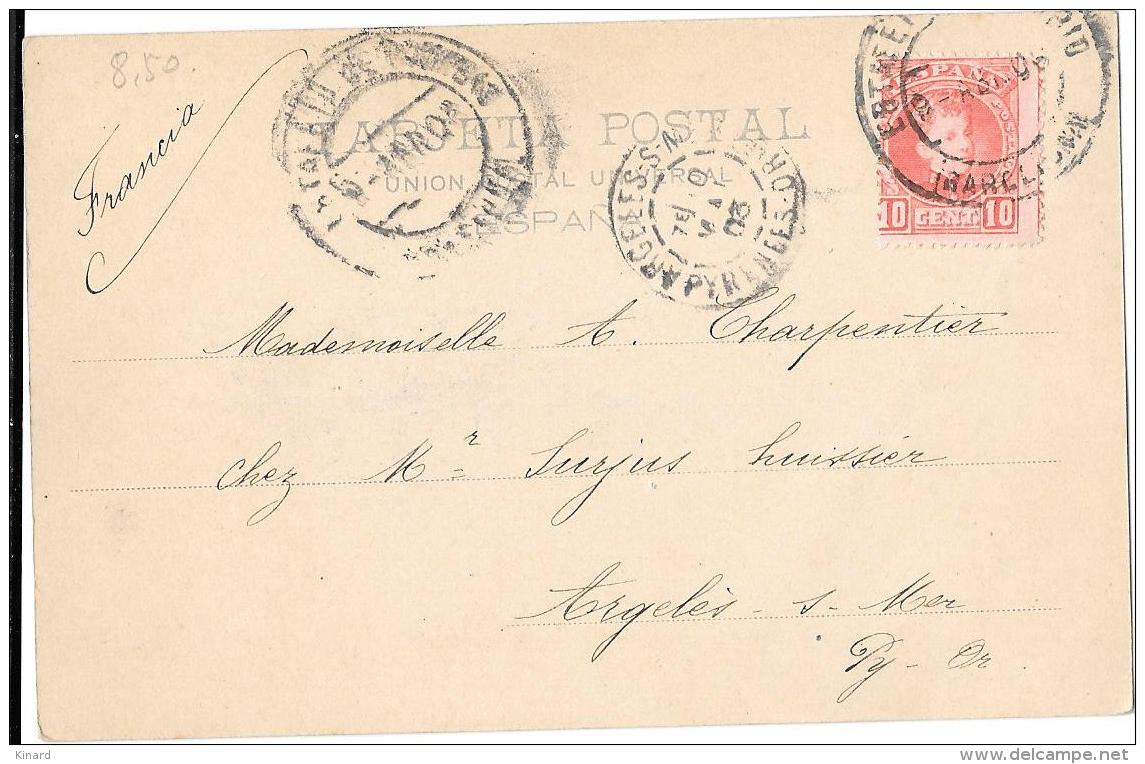 8,50
Francia
TARJETA POSTAL
UNION POSTAL UNIVERSAL
ESPAÑA
ESPAÑA
10 CENT. 10
ARGELES-S-M
PYRENEES-OR
Mademoiselle A. Charpentier
chez Mr Surjus huissier
Argelès-s-Mer
Py-Or
Kinard
delcampe.net